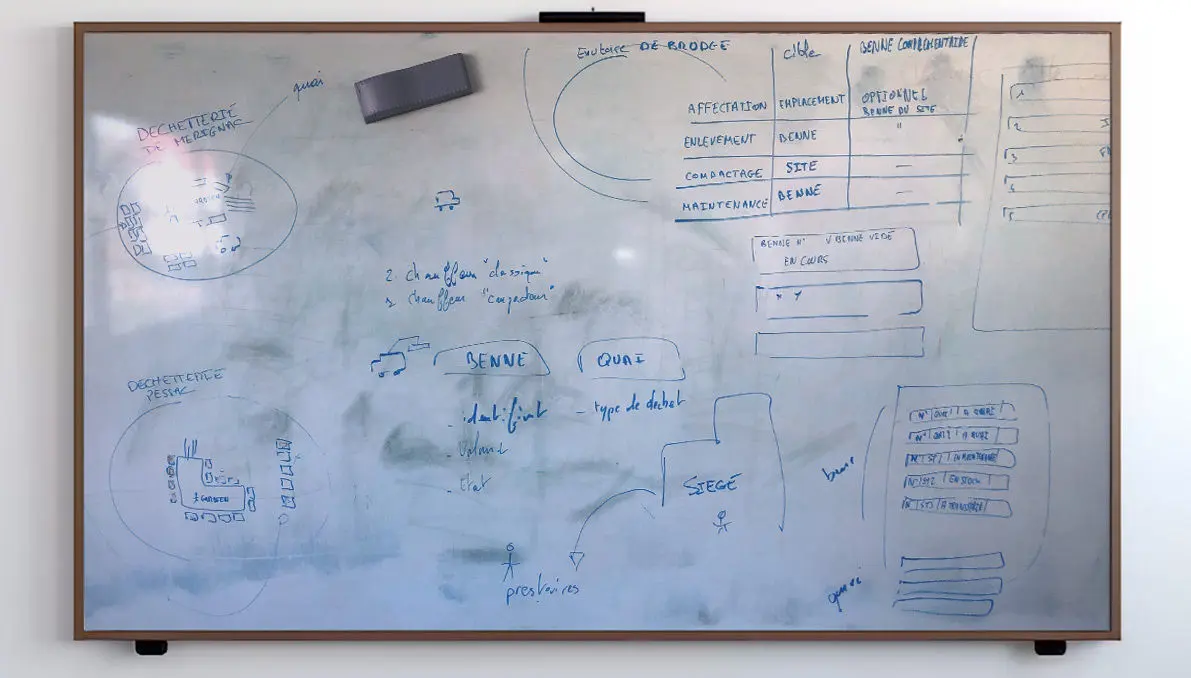 quai
DECHETTERIE
DE MERIGNAC
GARDIEN
2 chauffeurs "classique"
1 chauffeur "compacteur"
DECHETTERIE
PESSAC
GARDIEN
BENNE
- identifiant
- Volume
- Etat
QUAI
- type de déchet
SIEGE
prestataires
Exutoire DE BRODGE
cible
BENNE COMPLEMENTAIRE
AFFECTATION EMPLACEMENT OPTIONNEL
BENNE DU SITE
ENLEVEMENT BENNE "
COMPACTAGE SITE —
MAINTENANCE BENNE —
BENNE N° V BENNE VIDE
EN COURS
1
2
3
4
5
benne
N° QUAI A QUAI
N° QUAI A QUAI
N° ST1 EN MAINTENANCE
N° ST2 EN STOCK
N° ST3 A TRANSFERER
quai